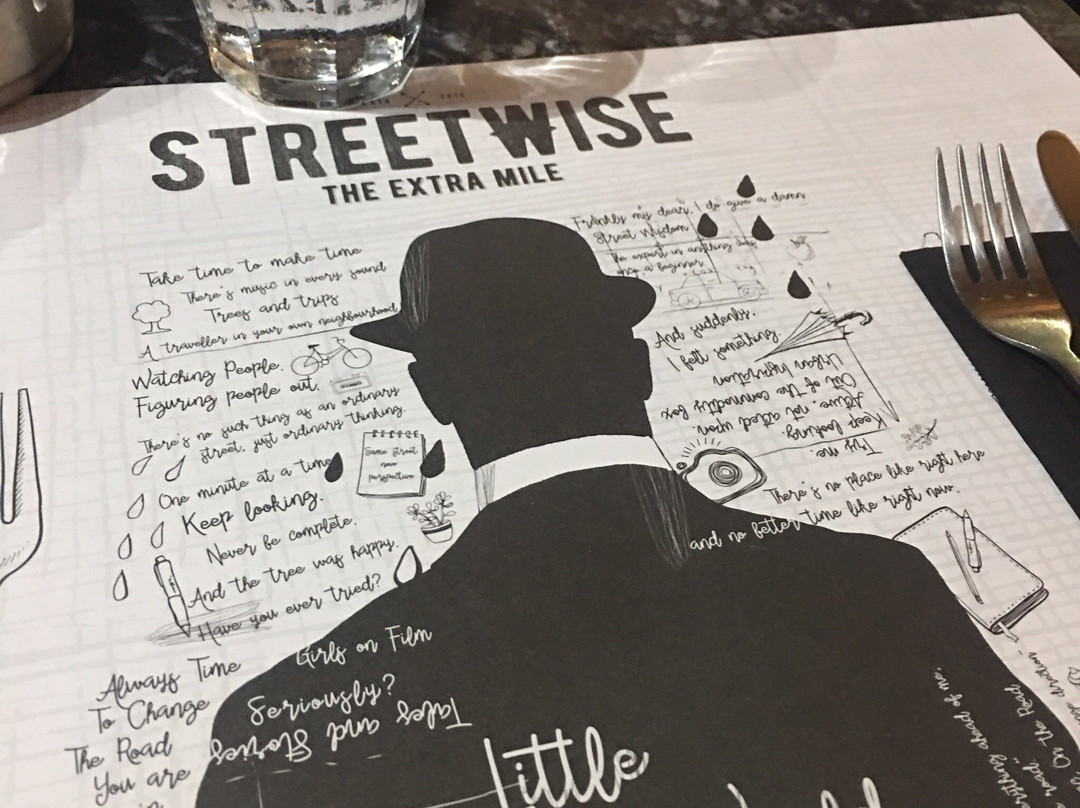 STREETWISE
THE EXTRA MILE
Take time to make time
There's music in every sound
Trees and trips
A traveller in your own neighbourhood
Watching People.
Figuring people out.
There's no such thing as an ordinary
street, just ordinary thinking.
One minute at a time
Same street
new
perspective
Keep looking.
Never be complete.
And the tree was happy.
Have you ever tried?
Girls on Film
Always Time
To Change
The Road
You are
in
Seriously?
Tales and Stories
little
Frankly my dear, I do give a damn
Street Wisdom
The expert in anything was
once a beginner.
And suddenly,
I felt something.
Try me.
Keep looking.
Active, not acted upon
Out of the commodity box
Urban Inspiration
There's no place like right here
and no better time like right now.
ahead of me,
On the Road
road,
direction"